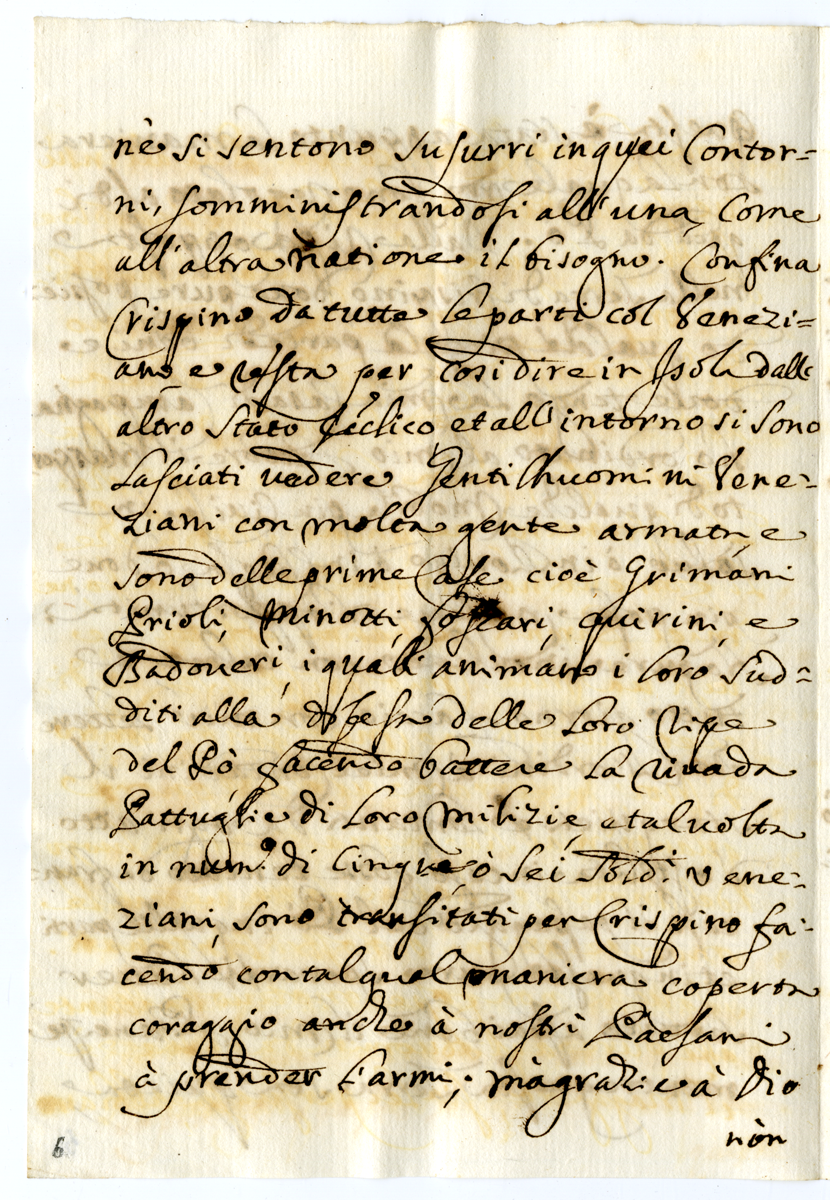 nè si sentono susurri in quei Contor=
ni, somministrandosi all'una, Come
all'altra natione il bisogno. Confina
Crispino da tutte le parti col Venezi=
ano e resta per cosi dire in Isola dalle
altro Stato Ecclico et all'intorno si sono
Lasciati vedere Gentilhuomini Vene=
ziani con molta gente armata e
sono delle prime Case cioè Grimani
Prioli, Minotti, Foscari, Quirini, e
Badoueri, i quali animano i loro sud=
diti alla difesa delle Loro ripe
del Pò facendo battere La riua da
Pattuglie di Loro Milizie, e tal uolta
in num.o di Cinque, ò Sei Sold.i Vene=
ziani, sono transitati per Crispino fa=
cendo con tal qual maniera coperta
coraggio anche à nostri Paesani
à prender L'armi; mà grazie à Dio
nòn
6